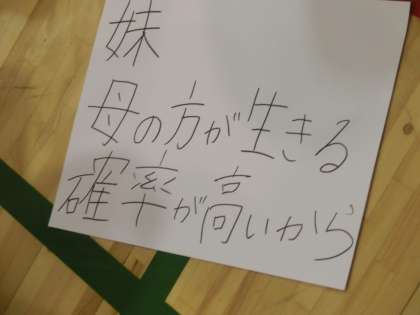 妹
母の方が生きる
確率が高いから